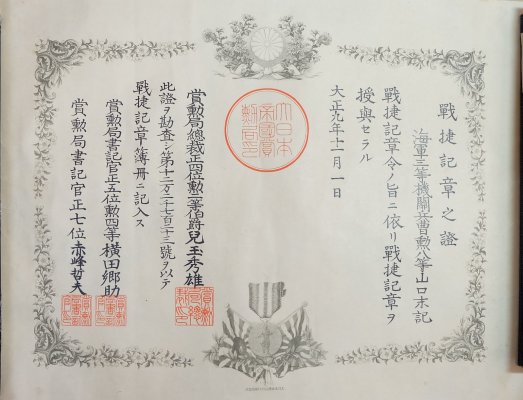 戰捷記章之證
海軍三等機關兵曹勲八等山口末記
戰捷記章令ノ旨ニ依リ戰捷記章ヲ
授與セラル
大正九年十一月一日
大日本帝國賞勲局印
賞勲局總裁正四位勲二等伯爵兒玉秀雄
此證ヲ勘査シ第十二万二千七百三十三號ヲ以テ
戰捷記章簿冊ニ記入ス
賞勲局書記官正五位勲四等橫田郷助
賞勲局書記官正七位赤峰哲夫